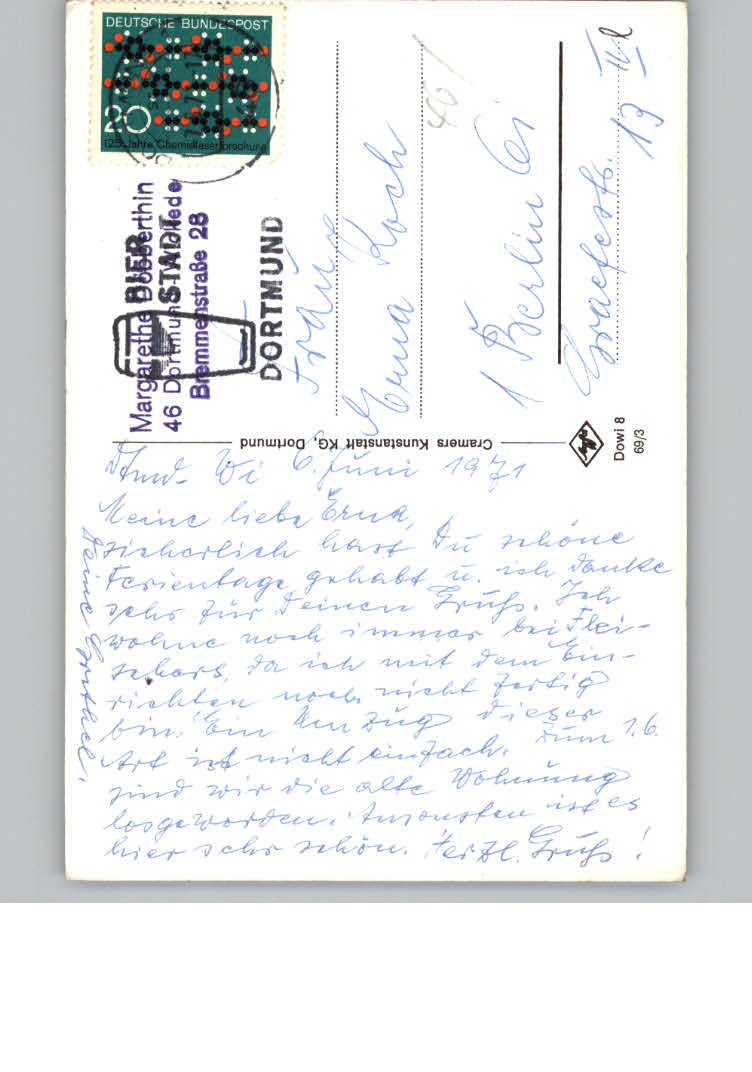 DEUTSCHE BUNDESPOST
20
125 Jahre Chemiefaserforschung
Margarethe Dobberthin
46 Dortmund-Wickede
Bremmenstraße 28
BIER
STADT
DORTMUND
Fräul.
Erna Koch
1 Berlin 61
Graefestr. 13 II
Cramers Kunstanstalt KG, Dortmund
Dowi 8
69/3
Dtmd- Wi 6. Juni 1971
Meine liebe Erna,
sicherlich hast Du schöne
Ferientage gehabt u. ich danke
sehr für Deinen Gruß. Ich
wohne noch immer bei Flei-
schers, da ich mit dem Ein-
richten noch nicht fertig
bin. Ein Umzug dieser
Art ist nicht einfach. Zum 1.6.
sind wir die alte Wohnung
losgeworden. Ansonsten ist es
hier sehr schön. Herzl. Gruß!
Deine